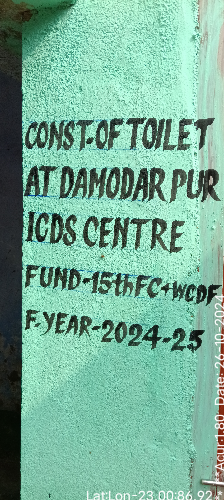 CONST. OF TOILET
AT DAMODARPUR
ICDS CENTRE
FUND-15thFC+WCDF
F.YEAR-2024-25
Lat:Lon-23.00:86.92
Acu:1.80 Date: 26-10-202